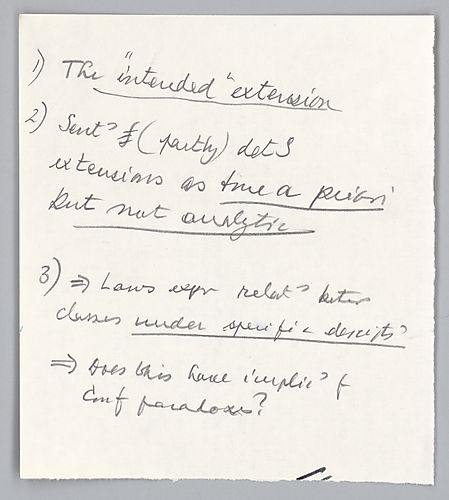 1) The "intended" extension
2) Sent˒ (partly) det
extensions as true a priori
but not analytic
3) ⇒ Laws expr relat˒ betw
classes under specific descripts˒
⇒ Does this have implic˒ f
conf paradoxes?